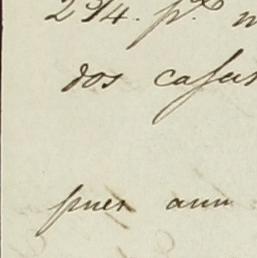 2 3/4. p.r
dos casas
pues aun